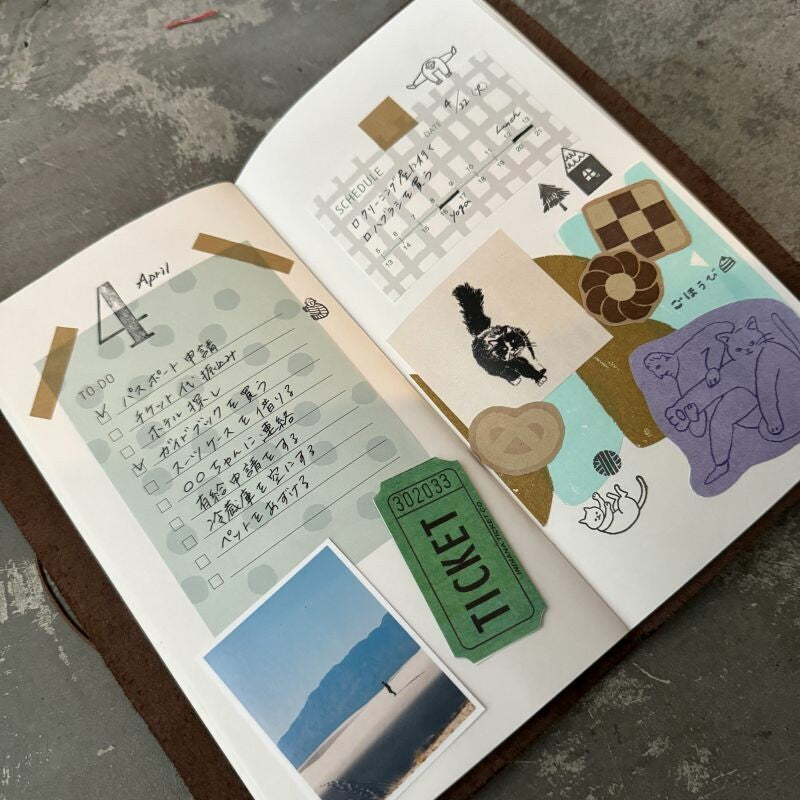 4
April
TO DO
パスポート申請
チケット代振込み
ホテル探し
ガイドブックを買う
スーツケースを借りる
〇〇ちゃんに連絡
有給申請をする
冷蔵庫を空にする
ペットをあずける
302033
TICKET
INDIANA TICKET CO
DATE
4/22(火)
SCHEDULE
クリーニング屋に行く
ハブラシを買う
Lunch
5 6 7 8 9 10 11 12 13
13 14 15 16 17 18 19 20 21
Yoga
ごほうび